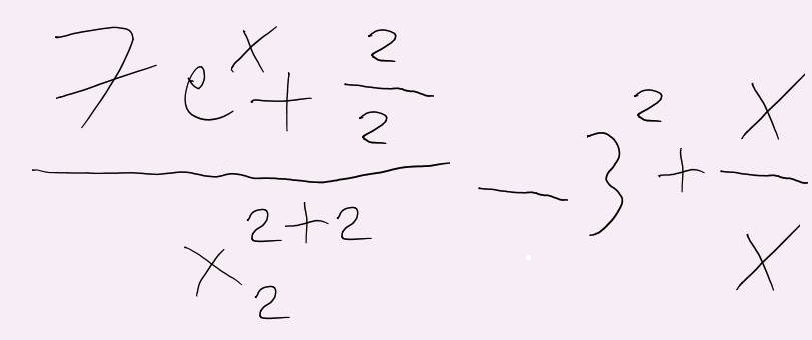 \frac{7e^{x}+\frac{2}{2}}{x_{2}^{2+2}}-3^{2}+\frac{x}{x}